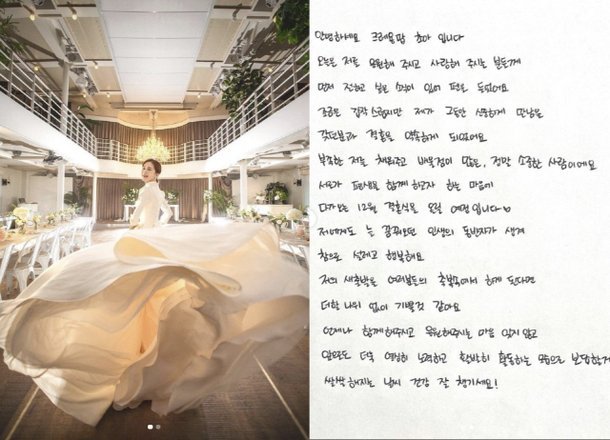 안녕하세요 크레용팝 초아 입니다
오늘은 저를 응원해 주시고 사랑해 주시는 분들께
먼저 전하고 싶은 소식이 있어 펜을 들었어요
조금은 갑작스럽지만 제가 그동안 신중하게 만남을
갖던분과 결혼을 약속하게 되었어요
부족한 저를 채워주고 배울점이 많은, 정말 소중한 사람이에요
서로가 평생을 함께 하고자 하는 마음에
다가오는 12월 결혼식을 올릴 예정입니다♡
저에게도 늘 꿈꿔오던 인생의 동반자가 생겨
참으로 설레고 행복해요
저의 새출발을 여러분들의 축복속에서 하게 된다면
더할 나위 없이 기쁠것 같아요
언제나 함께해주시고 응원해주시는 마음 잊지 않고
앞으로도 더욱 열심히 노력하고 활발히 활동하는 모습으로 보답할게
쌀쌀해지는 날씨 건강 잘 챙기세요!